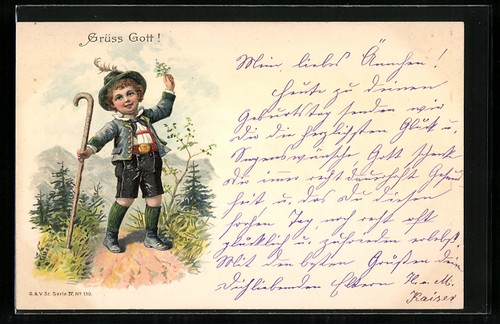 Grüss Gott!
Mein liebes Ännchen!
Heute zu deinem
Geburtstag senden wir
Dir die herzlichsten Glück u.
Segenswünsche, Gott schenk
Dir immer recht dauerhaft Gesund
heit u. das Du diesen
frohen Tag noch recht oft
glücklich u. zufrieden erlebst.
Mit den besten Grüßen dein
Dichliebenden Eltern H. u. M.
Kaiser
G. & V. St. Serie IV. No 130.